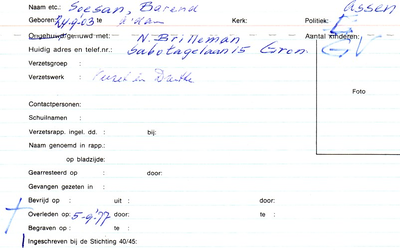 Naam etc.: Soesan, Barend Assen
Geboren: 24-9-'03 te A'dam Kerk: Politiek:
Ongehuwd/gehuwd met: N. Brilleman Aantal kinderen:
Huidig adres en telef.nr.: Sabotagelaan 15 Gron.
Verzetsgroep :
Verzetswerk : in Drenthe
Foto
Contactpersonen:
Schuilnaam :
Verzetsrapp. ingel. dd. : bij:
Naam genoemd in rapp.:
op bladzijde:
Gearresteerd op : door:
Gevangen gezeten in :
Bevrijd op : uit : door:
Overleden op: 5-9-'77 door: te :
Begraven op : te :
Ingeschreven bij de Stichting 40/45: